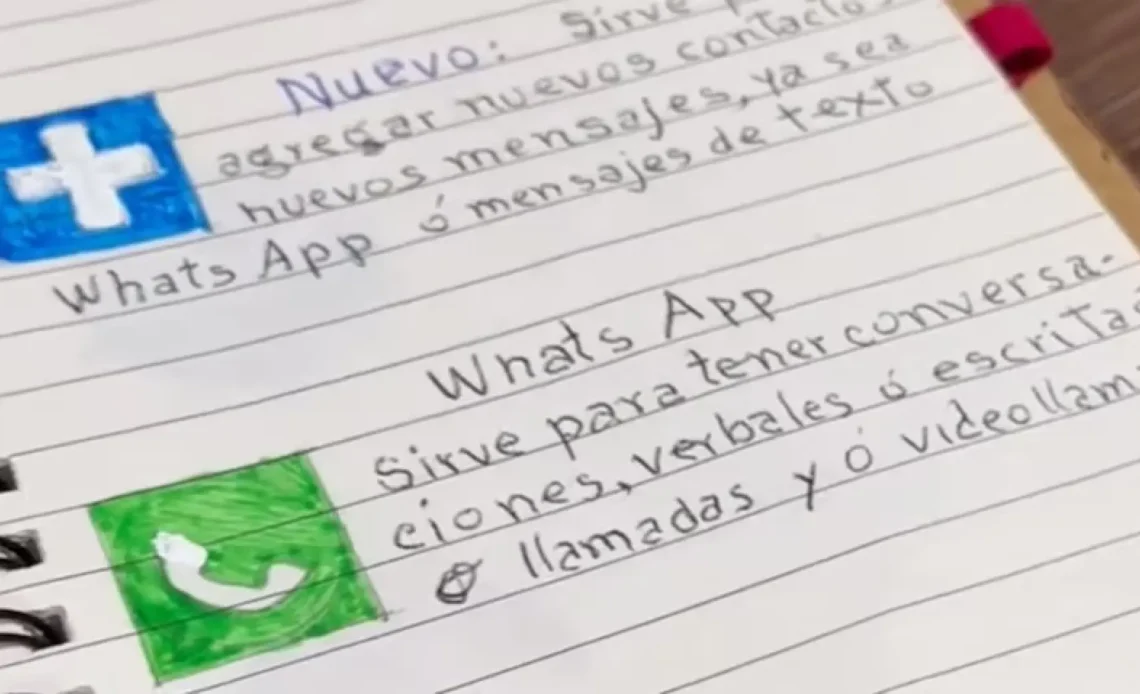 Nuevo: Sirve
agregar nuevos contactos
nuevos mensajes, ya sea
Whats App ó mensajes de texto
Whats App
Sirve para tener conversa-
ciones, verbales ó escritas
llamadas y ó videollam